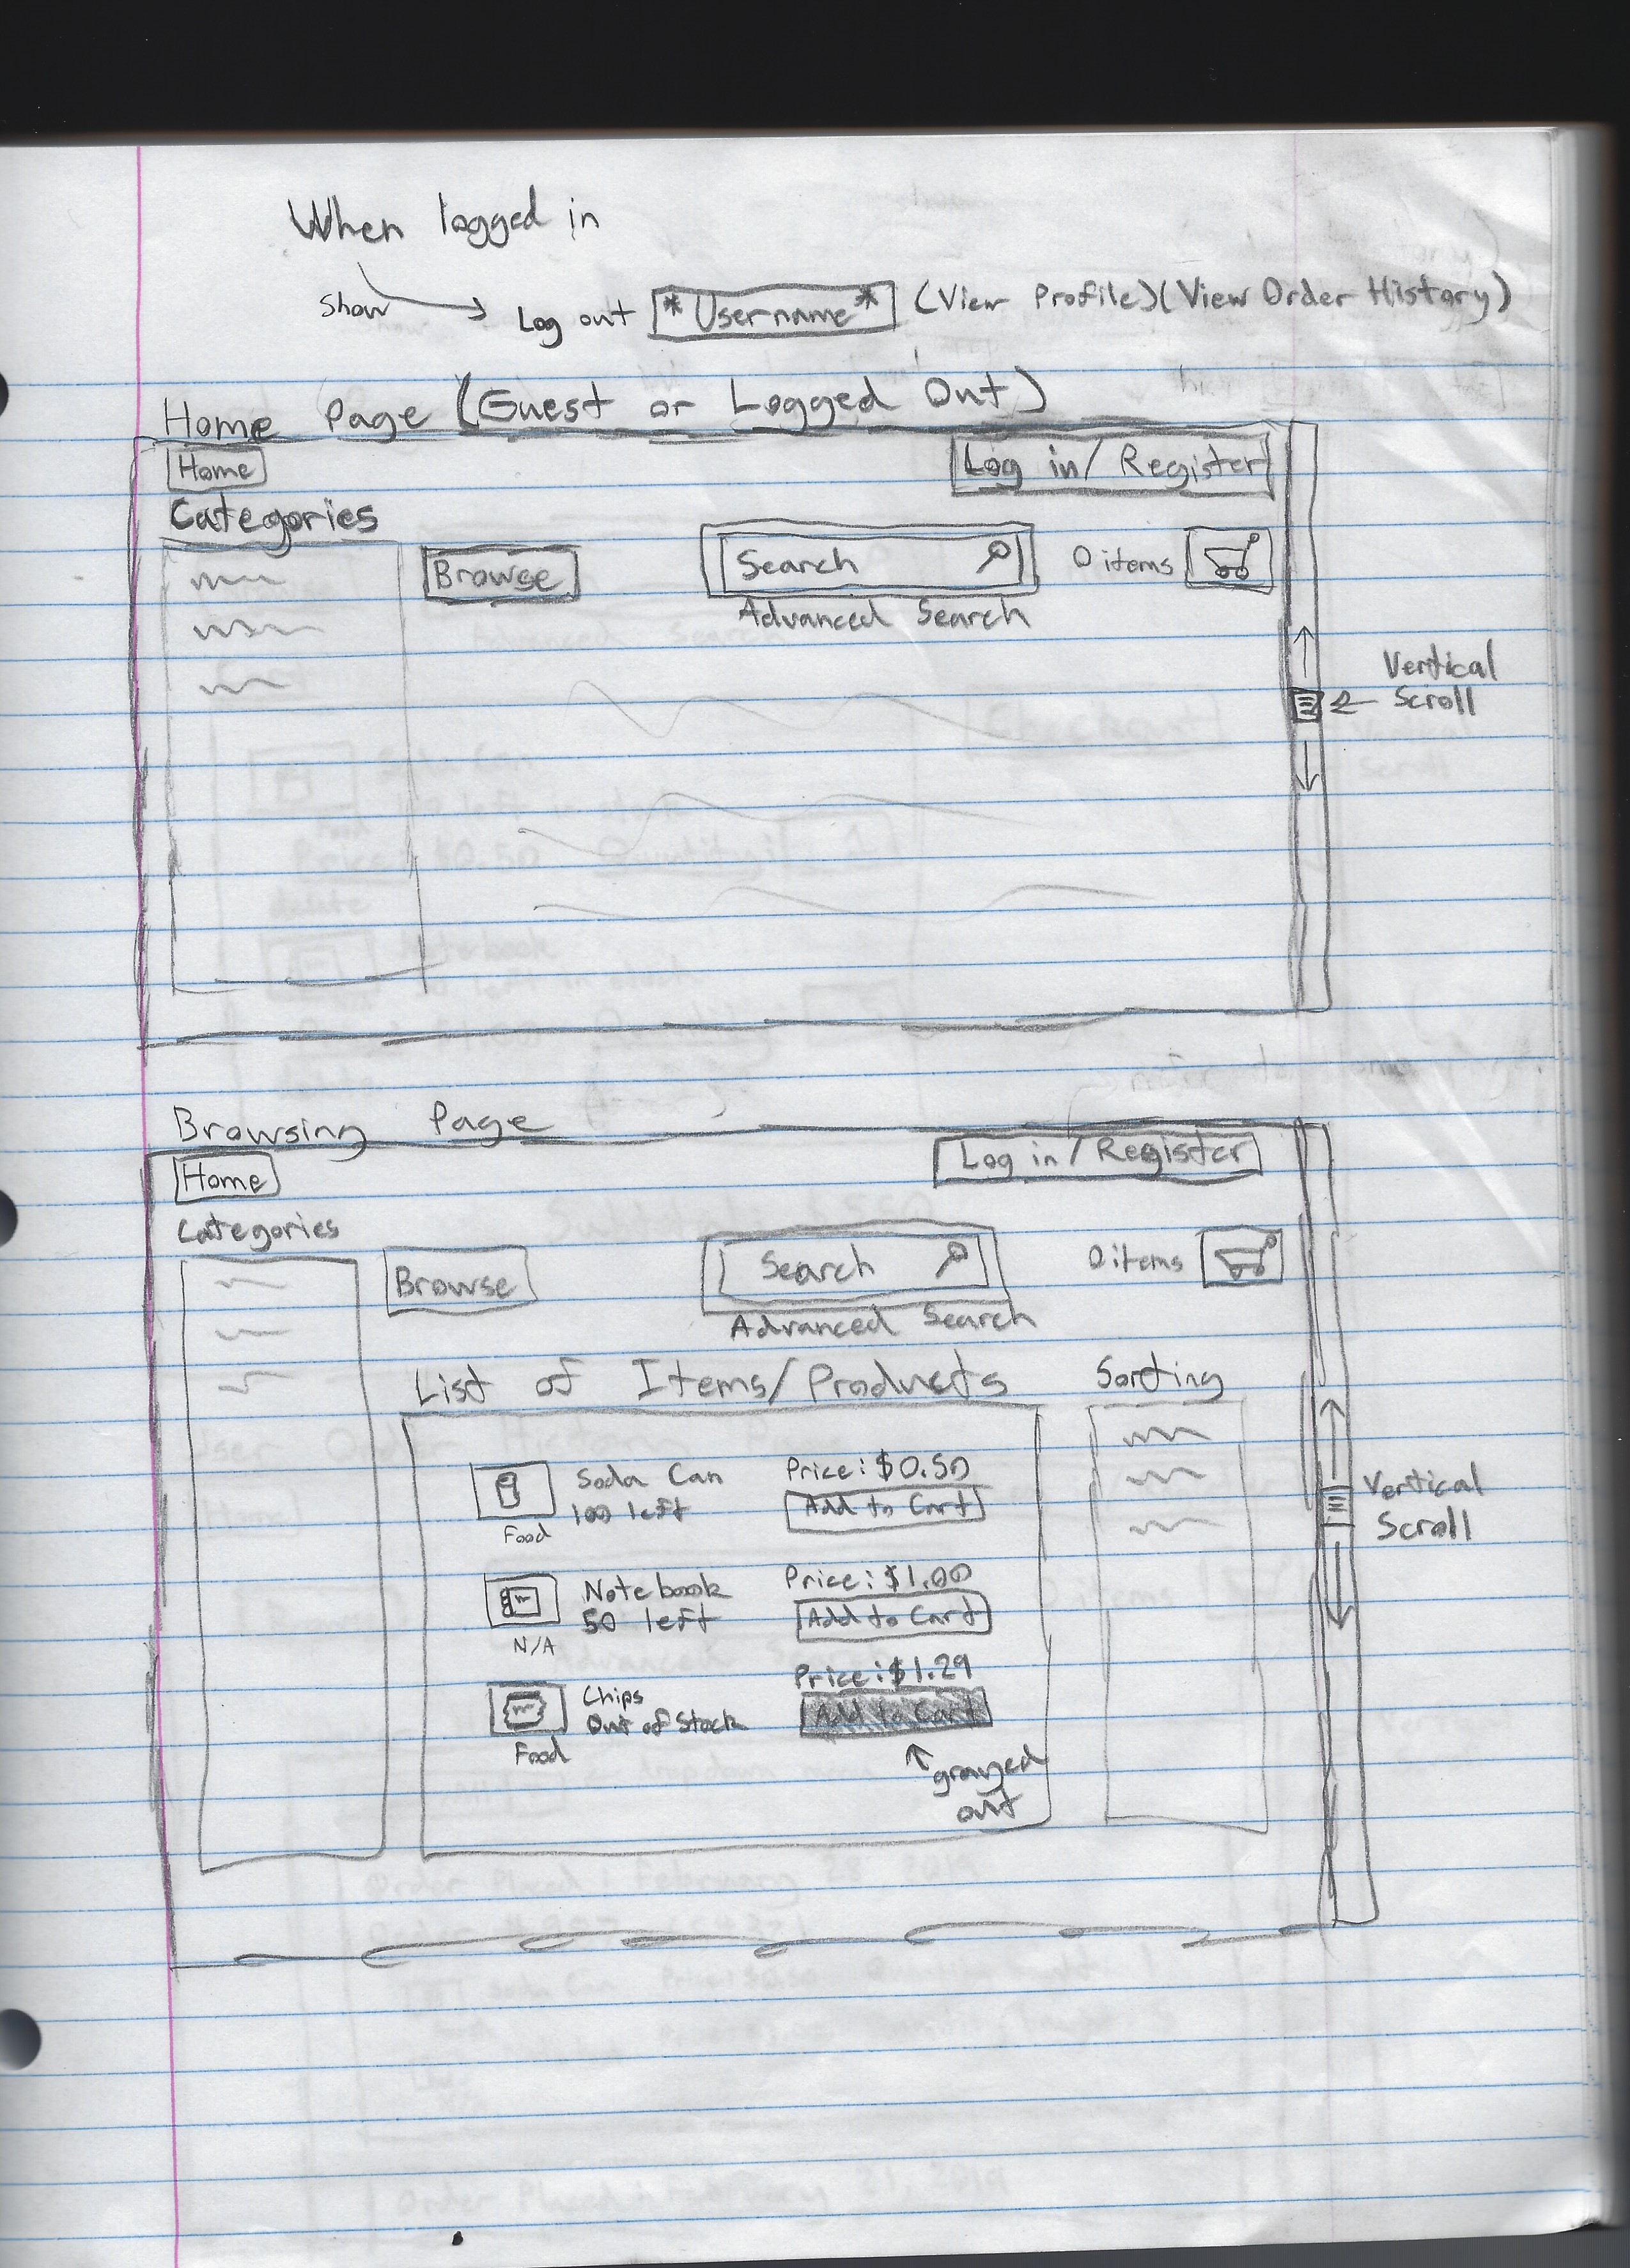 When logged in
Show Log out *Username* (View Profile)(View Order History)
Home Page (Guest or Logged Out)
Home Log in/Register
Categories
Browse Search 0 items
Advanced Search
Vertical
Scroll
Browsing Page
Home Log in/Register
Categories
Browse Search 0 items
Advanced Search
List of Items/Products Sorting
Soda Can Price: $0.50
100 left Add to Cart
Food
Notebook Price: $1.00
50 left Add to Cart
N/A
Chips Price: $1.29
Out of Stock Add to Cart
Food
grayed
out
Vertical
Scroll